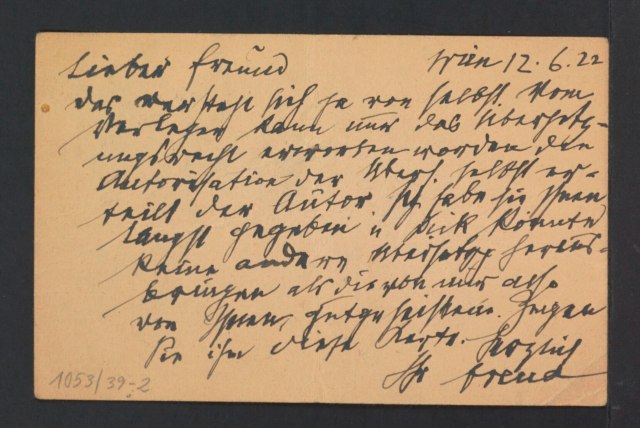 Lieber Freund Wien 12. 6. 22
das versteht sich ja von selbst. Vom
Verleger kann nur das Übersetz-
ungsrecht erworben werden die
Autorisation der Übers. selbst er-
teilt der Autor. Ich habe sie Ihnen
längst gegeben u Dick könnte
keine andere Übersetzg heraus-
bringen als die von mir also
von Ihnen, gutgeheißene. Zeigen
Sie ihm diese Karte. Herzlich
Ihr Freud
1053/39-2